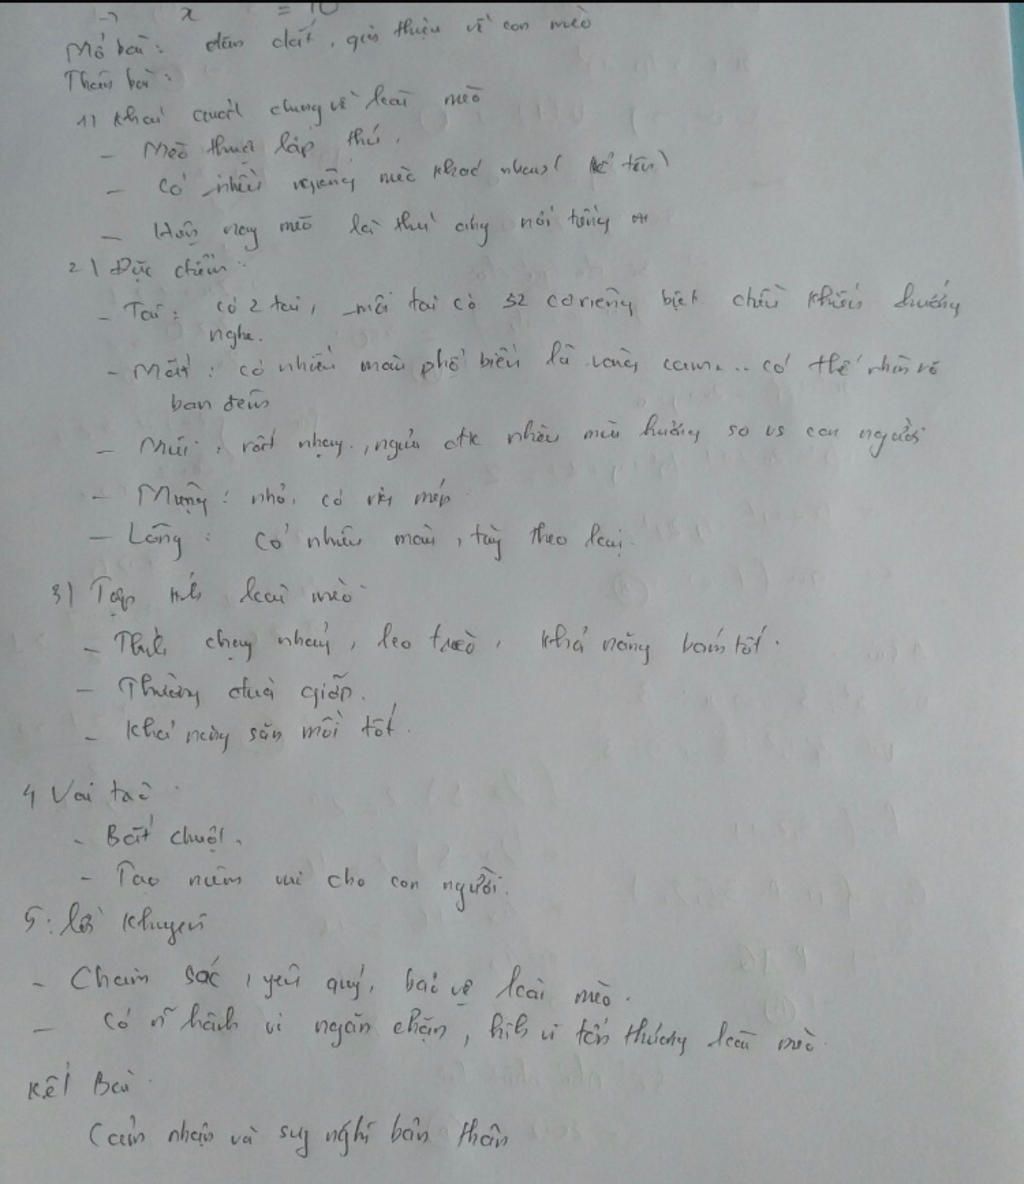 → x = 10
Mở bài: dẫn dắt, giới thiệu về con mèo
Thân bài:
1) Khái quát chung về loài mèo
- Mèo thuộc lớp thú.
- Có nhiều giống mèo khác nhau ( kể tên)
- Hiện nay mèo là thú cưng nổi tiếng
2) Đặc điểm:
- Tai: có 2 tai, mỗi tai có 32 cơ riêng biệt điều khiển hướng
nghe.
- Mắt: có nhiều màu phổ biến là vàng cam... có thể nhìn rõ
ban đêm
- Mũi: rất nhạy, ngửi đk nhiều mùi hương so vs con người
- Miệng: nhỏ, có ria mép
- Lông: có nhiều màu, tùy theo loại.
3) Tập tính loài mèo
- Thích chạy nhảy, leo trèo, khả năng bám tốt.
- Thường đùa giỡn.
- Khả năng săn mồi tốt.
4 Vai trò
- Bắt chuột.
- Tạo niềm vui cho con người.
5: lời khuyên
- Chăm sóc, yêu quý, bảo vệ loài mèo.
- Có n~ hành vi ngăn chặn, hành vi tổn thương loài mèo.
Kết Bài
Cảm nhận và suy nghĩ bản thân